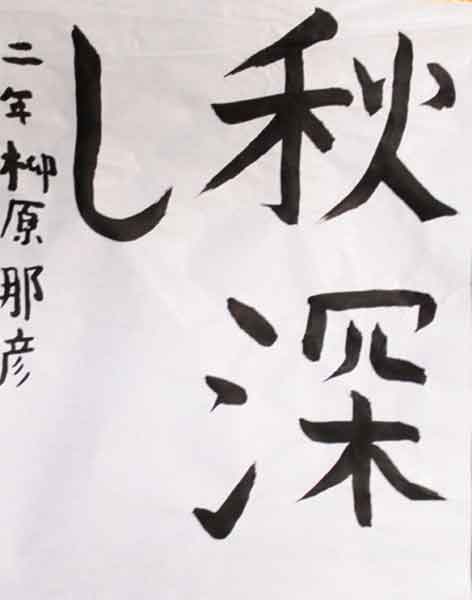 秋深
し
二年柳原那彦